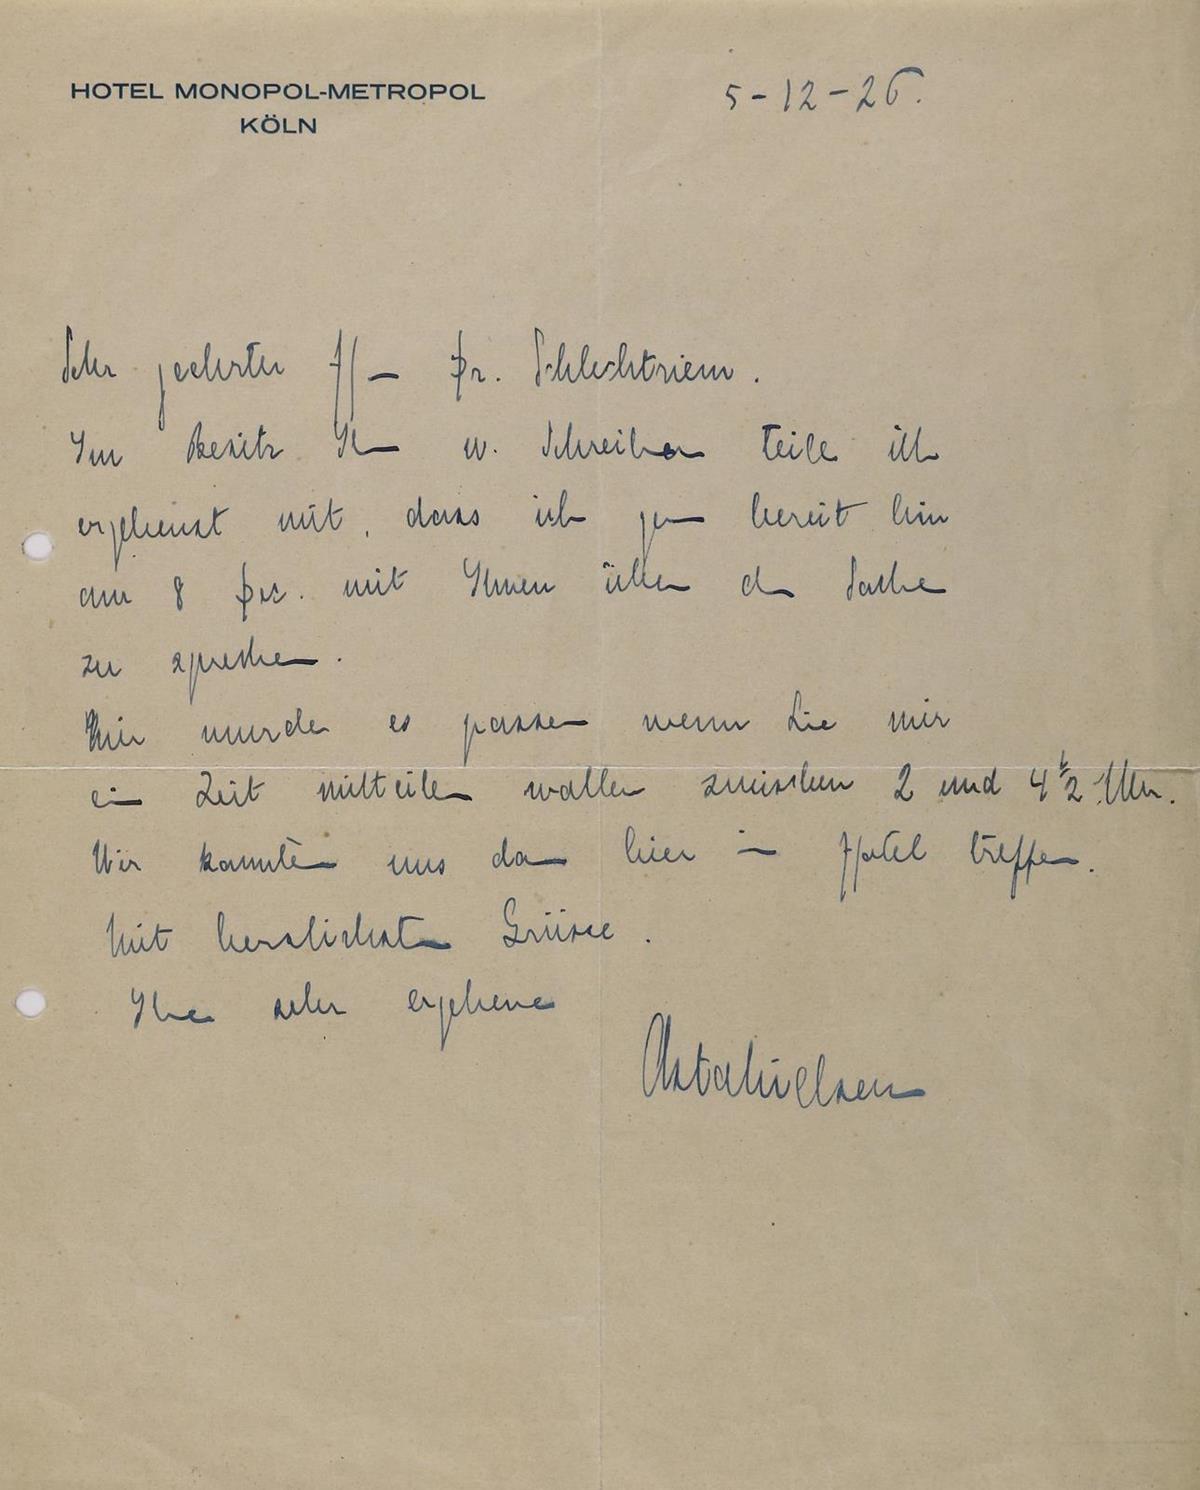 HOTEL MONOPOL-METROPOL
KÖLN
5-12-26.
Sehr geehrter Herr Dr. Schlechtriem.
Im Besitz Ihr w. Schreiben teile ich
ergebenst mit, dass ich gern bereit bin
am 8 Dez. mit Ihnen über die Sache
zu sprechen.
Mir wurde es passen wenn Sie mir
ein Zeit mitteilen wollen zwischen 2 und 4 1/2 Uhr.
Wir konnten uns dann hier im Hotel treffen.
Mit herzlichsten Grüsse.
Ihre sehr ergebene
Asta Nielsen